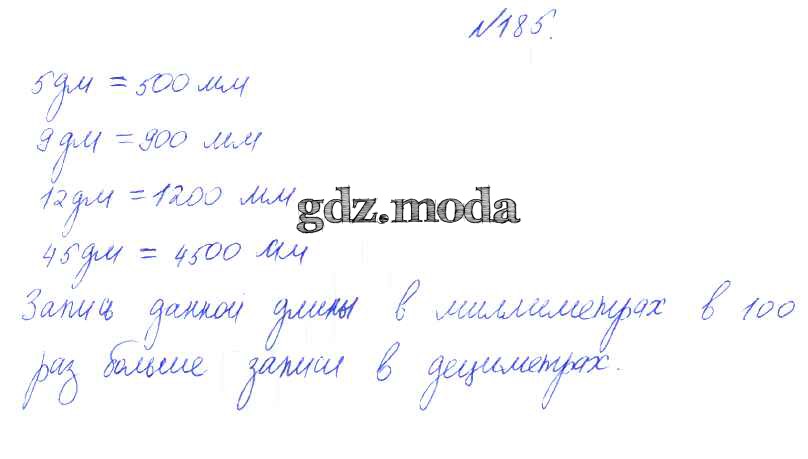 №185.
5дм = 500 мм
9дм = 900 мм
12дм = 1200 мм
gdz.moda
45дм = 4500 мм
Запись данной длины в миллиметрах в 100
раз больше записи в дециметрах.